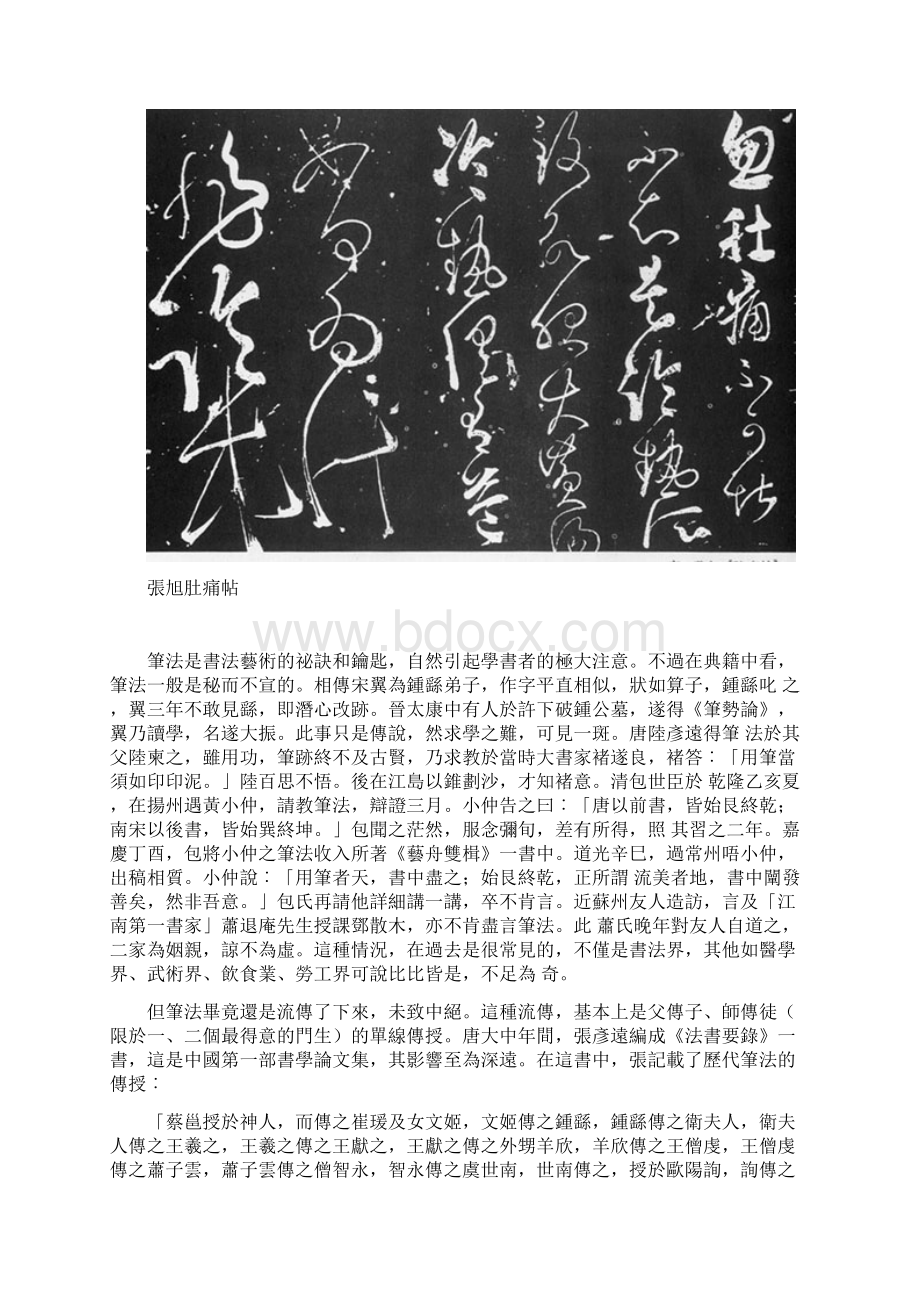 忽肚痛不可堪
不知是冷熱所
致欲服大黃湯
冷熱俱有益
如何為計
非臨床
張旭肚痛帖
www.bdocx.com
筆法是書法藝術的祕訣和鑰匙，自然引起學書者的極大注意。不過在典籍中看，
筆法一般是秘而不宣的。相傳宋翼為鍾繇弟子，作字平直相似，狀如算子，鍾繇叱 之
，翼三年不敢見繇，即潛心改跡。晉太康中有人於許下破鍾公墓，遂得《筆勢論》，
翼乃讀學，名遂大振。此事只是傳說，然求學之難，可見一斑。唐陸彥遠得筆 法於其
父陸柬之，雖用功，筆跡終不及古賢，乃求教於當時大書家褚遂良，褚答︰「用筆當
須如印印泥。」陸百思不悟。後在江島以錐劃沙，才知褚意。清包世臣於 乾隆乙亥夏
，在揚州遇黃小仲，請教筆法，辯證三月。小仲告之曰︰「唐以前書，皆始艮終乾；
南宋以後書，皆始巽終坤。」包聞之茫然，服念彌旬，差有所得，照 其習之二年。嘉
慶丁酉，包將小仲之筆法收入所著《藝舟雙楫》一書中。道光辛巳，過常州唔小仲，
出稿相質。小仲說︰「用筆者天，書中盡之；始艮終乾，正所謂 流美者地，書中闡發
善矣，然非吾意。」包氏再請他詳細講一講，卒不肯言。近蘇州友人造訪，言及「江
南第一書家」蕭退庵先生授課鄧散木，亦不肯盡言筆法。此 蕭氏晚年對友人自道之，
二家為姻親，諒不為虛。這種情況，在過去是很常見的，不僅是書法界，其他如醫學
界、武術界、飲食業、勞工界可說比比皆是，不足為 奇。
但筆法畢竟還是流傳了下來，未致中絕。這種流傳，基本上是父傳子、師傳徒（
限於一、二個最得意的門生）的單線傳授。唐大中年間，張彥遠編成《法書要錄》一
書，這是中國第一部書學論文集，其影響至為深遠。在這書中，張記載了歷代筆法的
傳授︰
「蔡邕授於神人，而傳之崔瑗及女文姬，文姬傳之鍾繇，鍾繇傳之衛夫人，衛夫
人傳之王羲之，王羲之傳之王獻之，王獻之傳之外甥羊欣，羊欣傳之王僧虔，王僧虔
傳之蕭子雲，蕭子雲傳之僧智永，智永傳之虞世南，世南傳之，授於歐陽詢，詢傳之